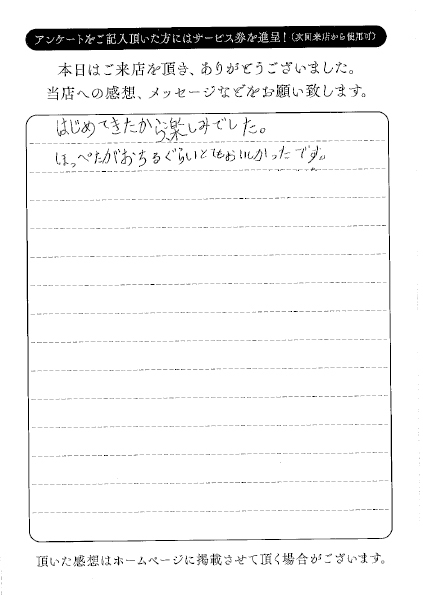 アンケートをご記入頂いた方にはサービス券を進呈!(次回来店から使用可)
本日はご来店を頂き、ありがとうございました。
当店への感想、メッセージなどをお願い致します。
はじめてきたから楽しみでした。
ほっぺたがおちるぐらいとてもおいしかったです。
頂いた感想はホームページに掲載させて頂く場合がございます。